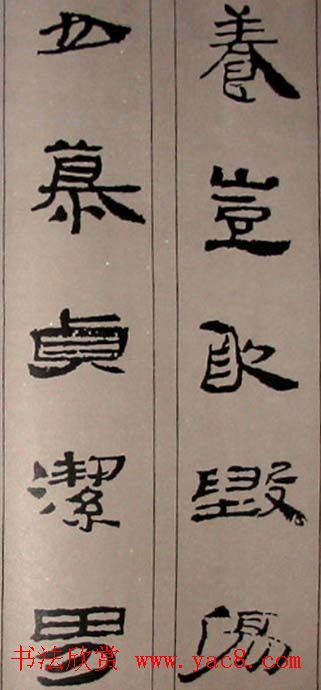 養豈敢毀傷
女慕貞潔男
书法欣赏 www.yac8.com